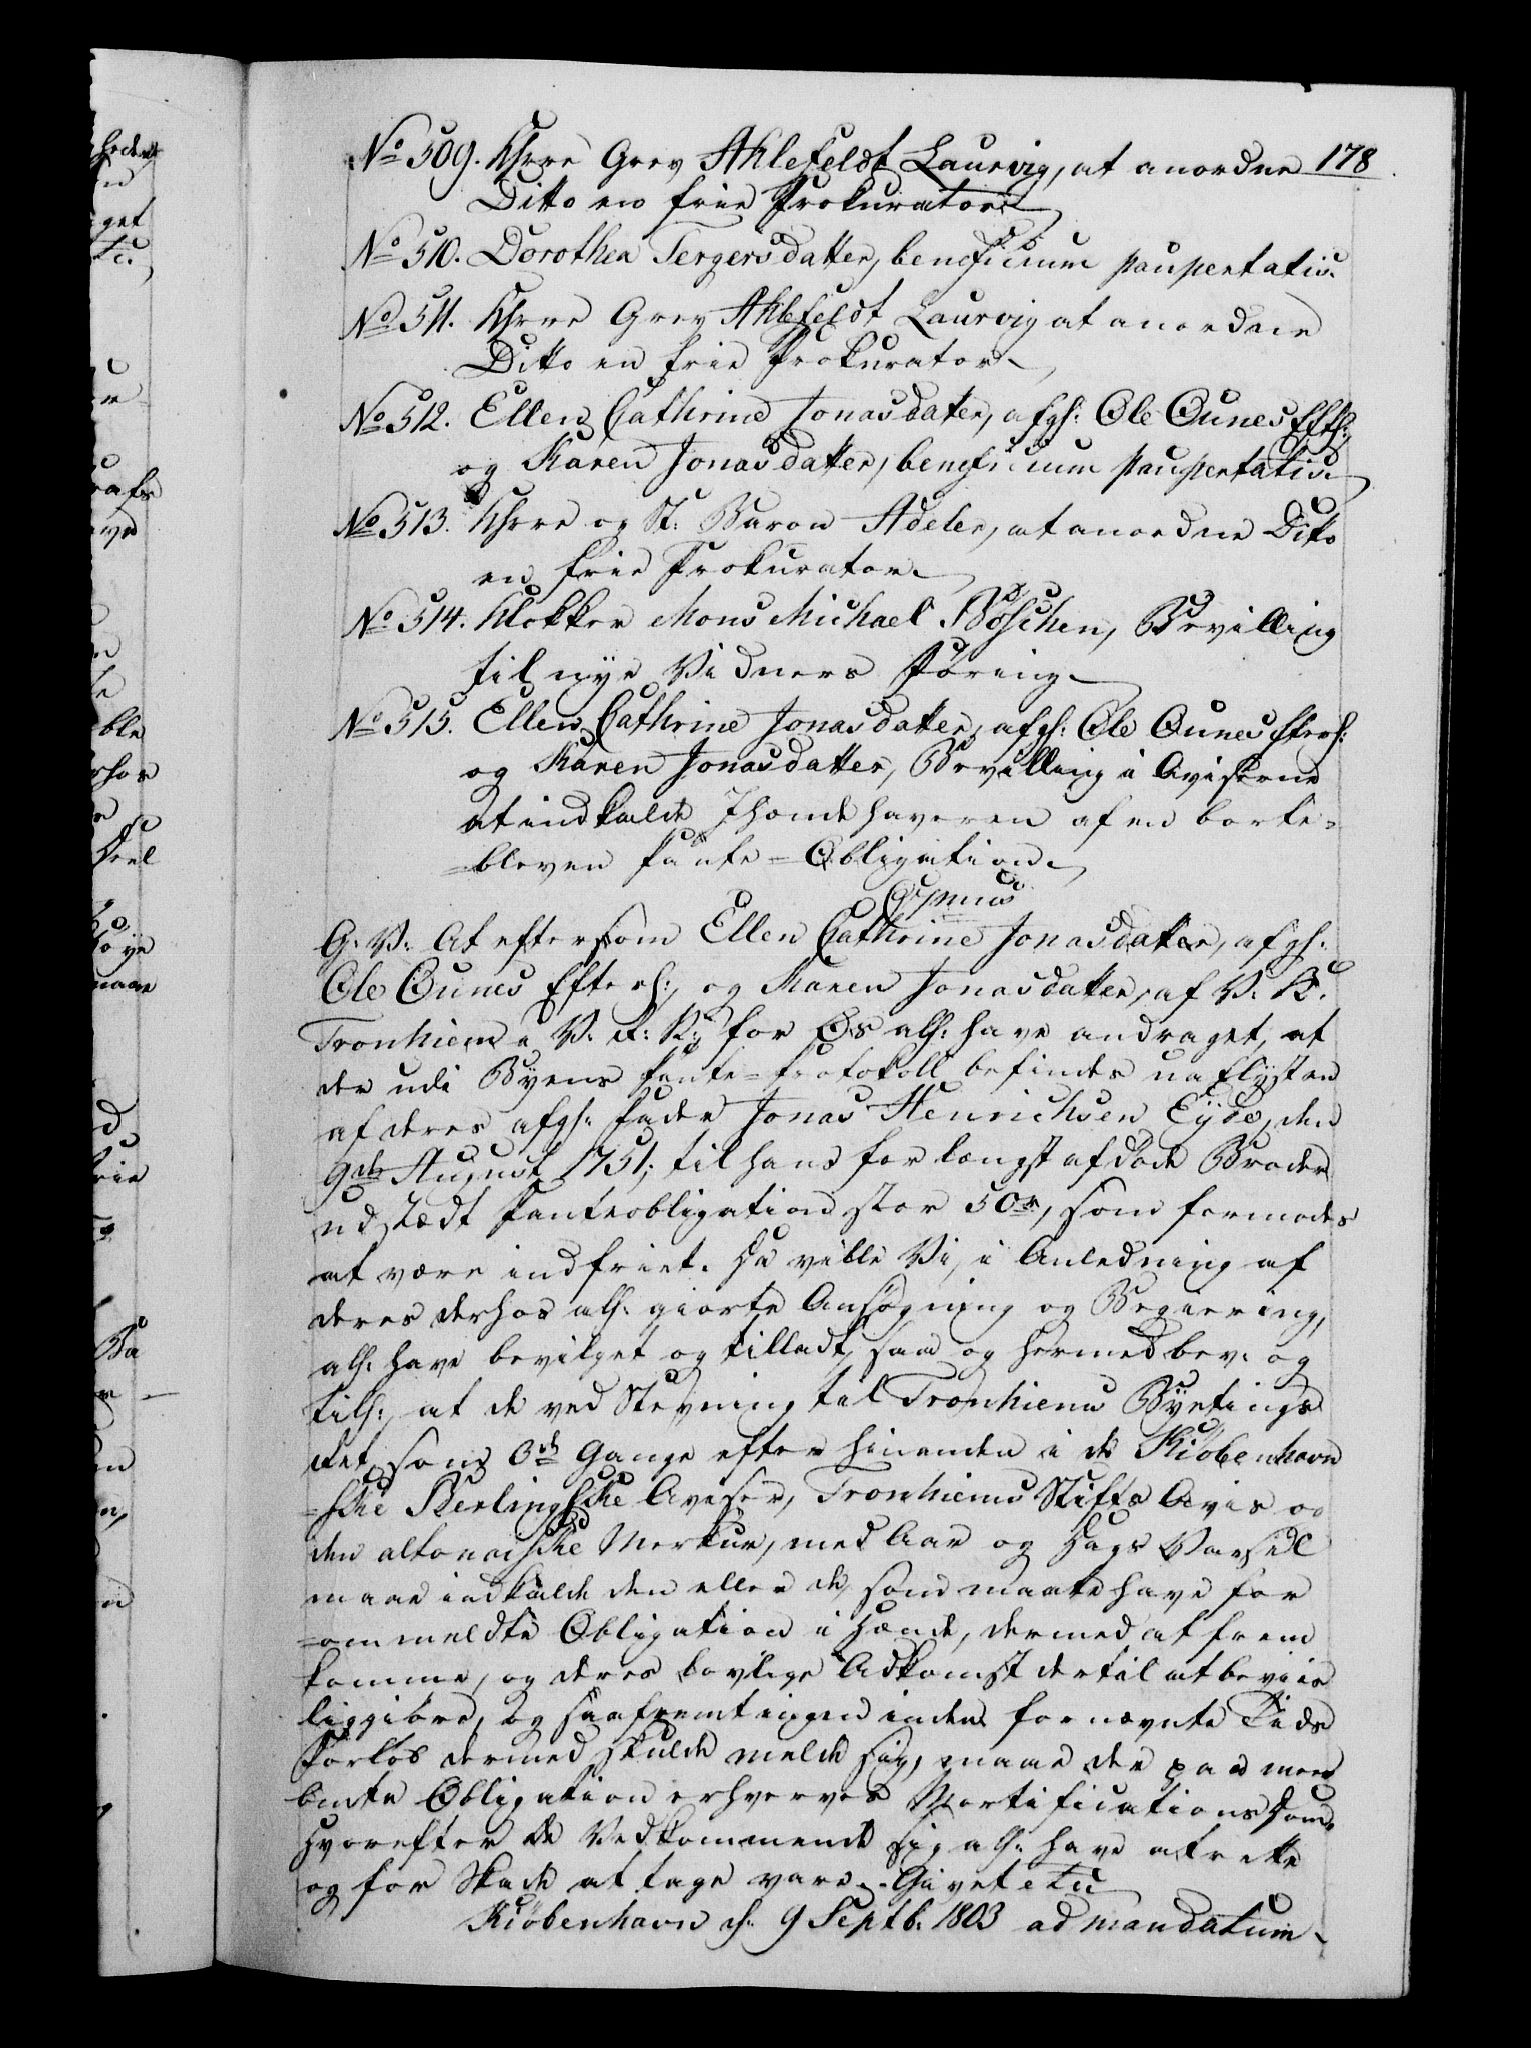 178
No 509. Khrre Grev Ahlefeldt Laurvig, at anordne
Ditto en frie Prokurator.
No 510. Dorothea Tergersdatter, beneficium paupertatis.
No 511. Khrre Grev Ahlefeldt Laurvig at anordne
Ditto en frie Prokurator.
No 512. Ellen Cathrine Jonasdatter, afg: Ole Ounes Efth:
og Karen Jonasdatter, beneficium paupertatis.
No 513. Khrre og St: Baron Adeler, at anordne Ditto
en frie Prokurator.
No 514. Klokker Mons Michael Böschen, Bevilling
til nye Vidners Föring.
No 515. Ellen Cathrine Jonasdatter, afg: Ole Ounes Efterl:
og Karen Jonasdatter, Bevilling i Aviserne
at indkalde Ihændehaveren af en borte=
=bleven Pante=Obligation.
G: V: At eftersom Ellen Cathrine Jonasdatter, afg:
Ole Ounes Efterl:, og Karen Jonasdatter, af V. K.
Tronhiem i V. R: N: for Os all: have andraget, at
der udi Byens Pante=Protokoll befindes uaflyst en
af deres afg: Fader Jonas Henrichsen Eyde, den
9de August 1751, til hans for længst afdöde Broder
udstædt Panteobligation stor 50 rd, som formodes
at være indfriet. Da ville Vi, i Anledning af
deres derhos all: giorte Ansögning og Begiering,
all: have bevilget og tilladt, saa og hermed bev: og
till:, at de ved Stevning til Tronhiems Byeting
det som 3de Gange efter hinanden i de Kiöbenhavn
=ske Berlingske Aviser, Tronhiems Stifts Avis og
den altonaiske Merkur, med Aar og Dags Varsel
maae indkalde den eller de, som maatte have for
=ommeldte Obligation i Hænde, dermed at frem
komme, og deres lovlige Adkomst dertil at beviis
liggiöre, og saafremt ingen inden fornævnte Tids
Forlöb dermed skulde melde sig, maae der paa meer
bemte Obligation erhverves Mortifications Dom.
Hvorefter de Vedkommende sig all: have at rette
og for Skade at tage vare. Givet etc
Kiöbenhavn d: 9 Septb: 1803 ad mandatum.